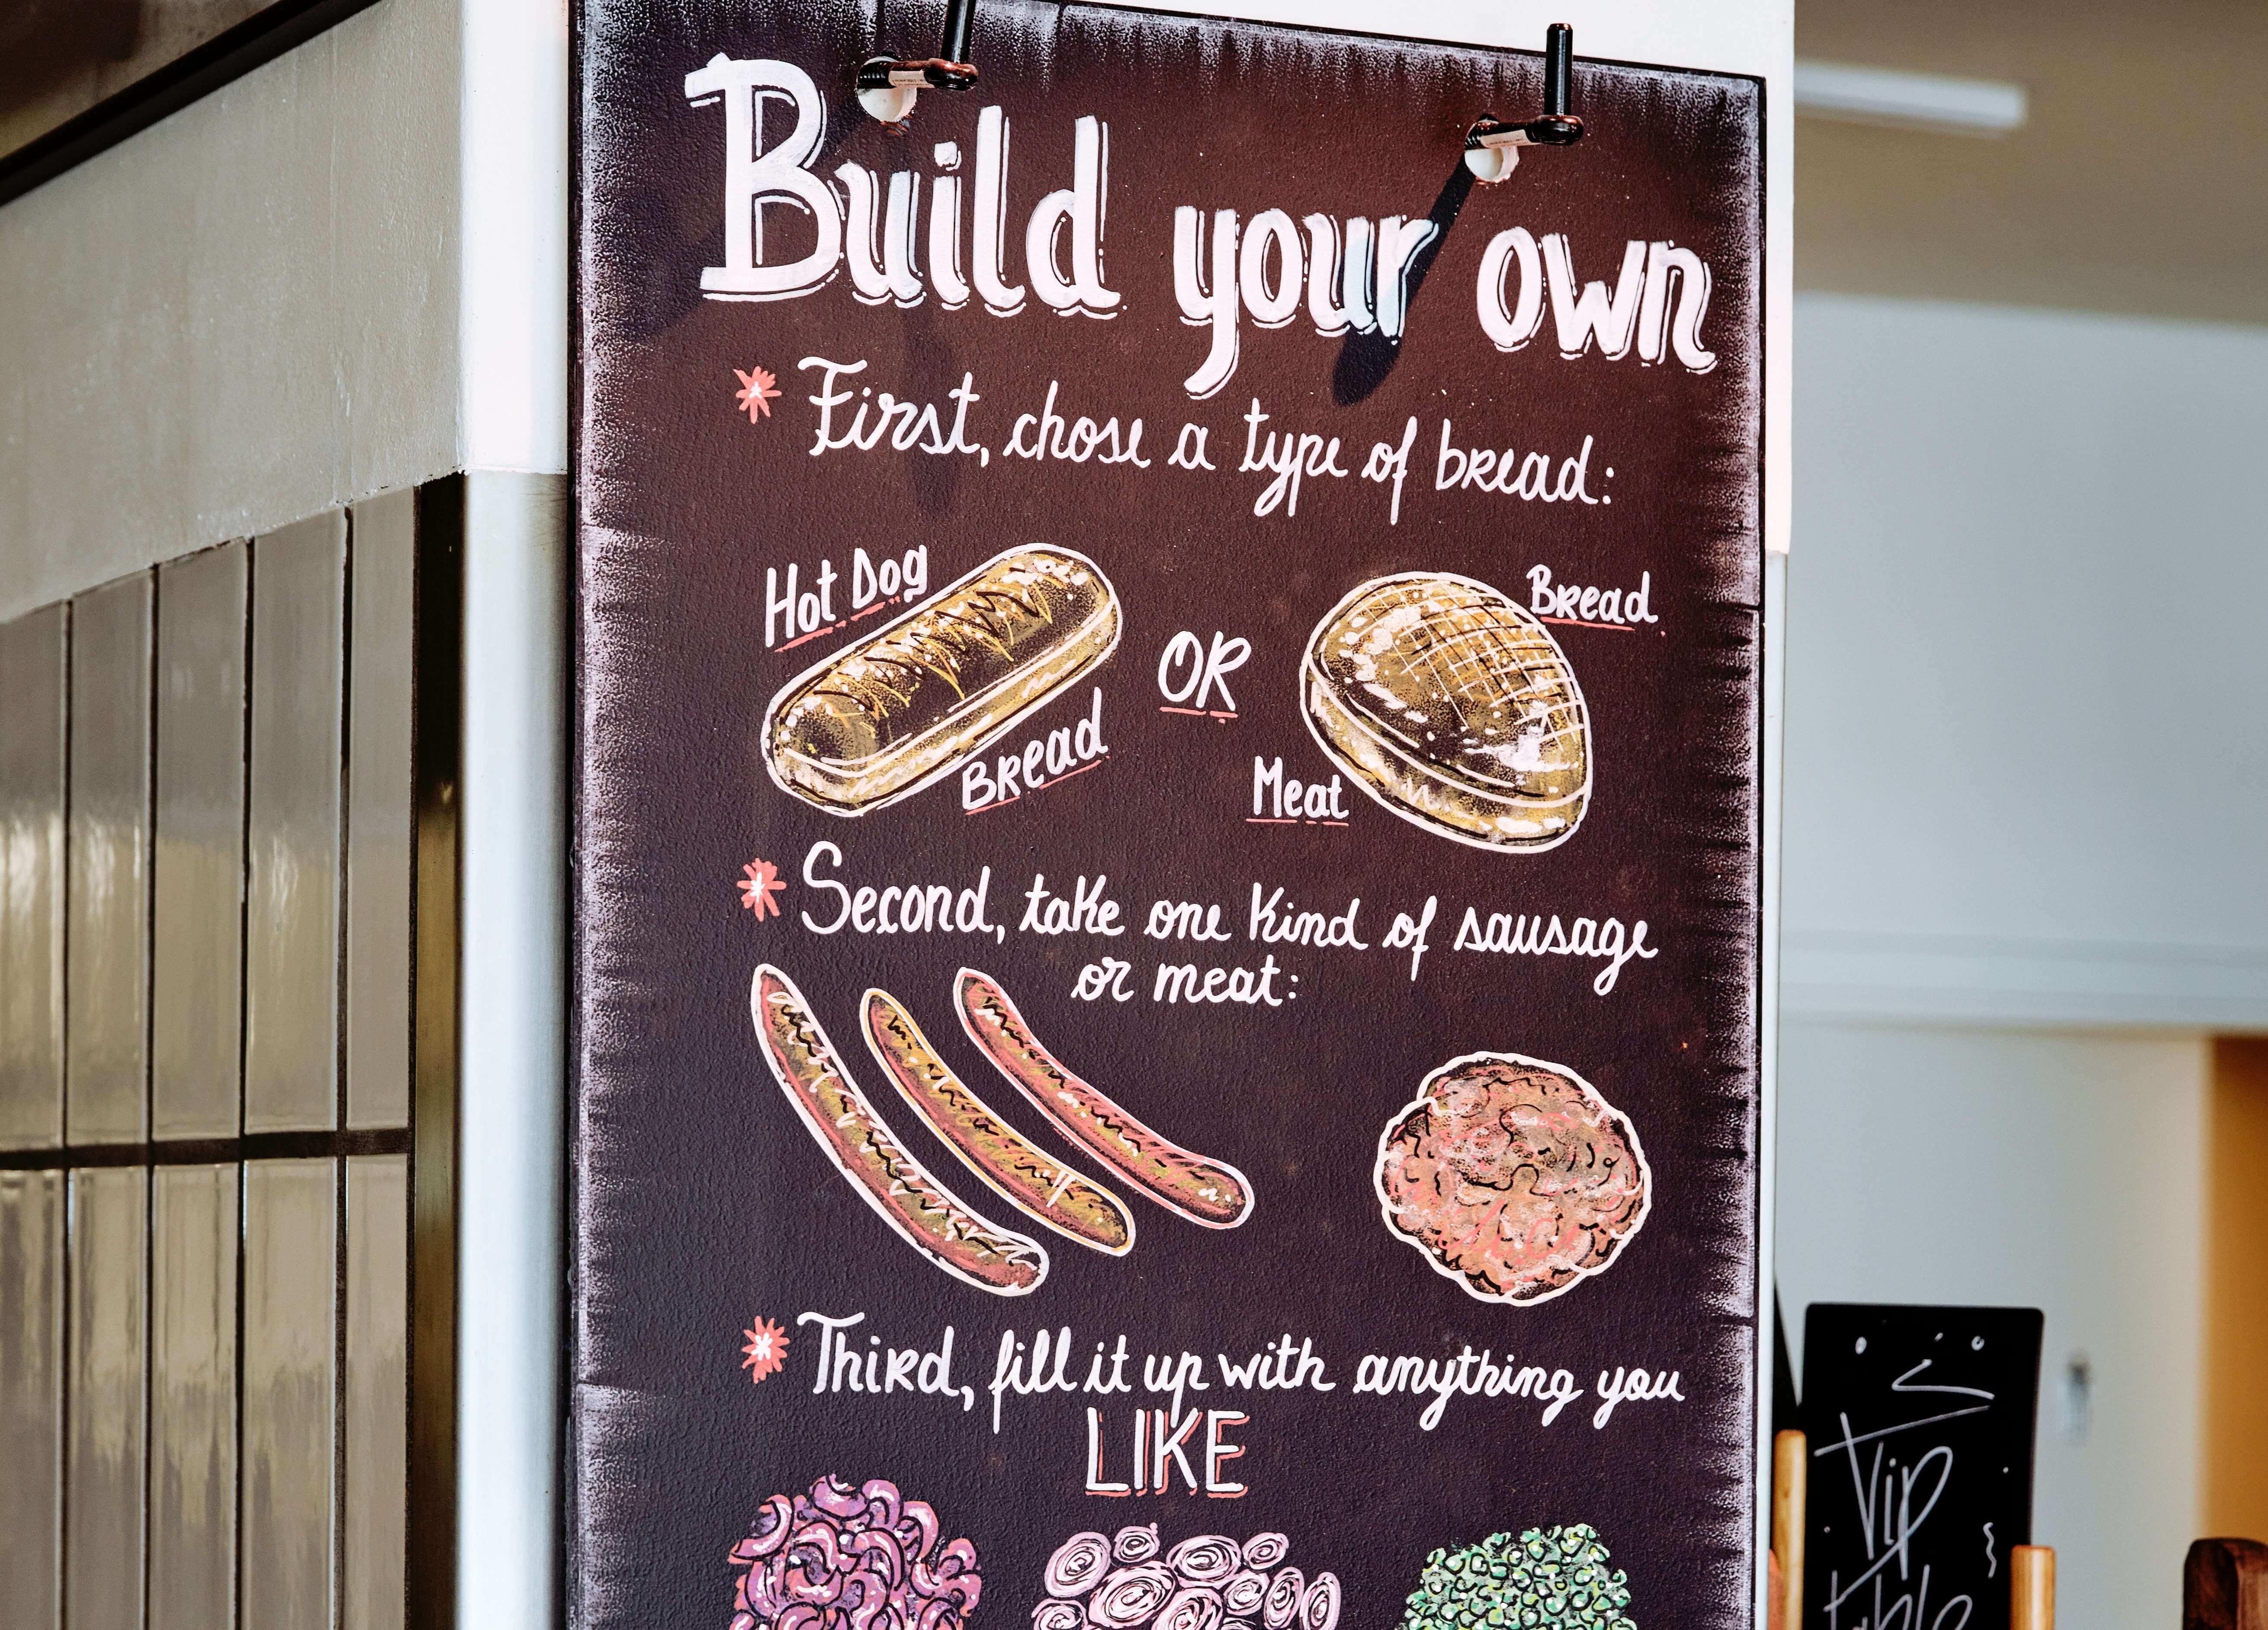 Build your own
First, chose a type of bread:
Hot Dog
Bread
OR
Bread
Meat
Second, take one kind of sausage
or meat:
Third, fill it up with anything you
LIKE
Vip
table